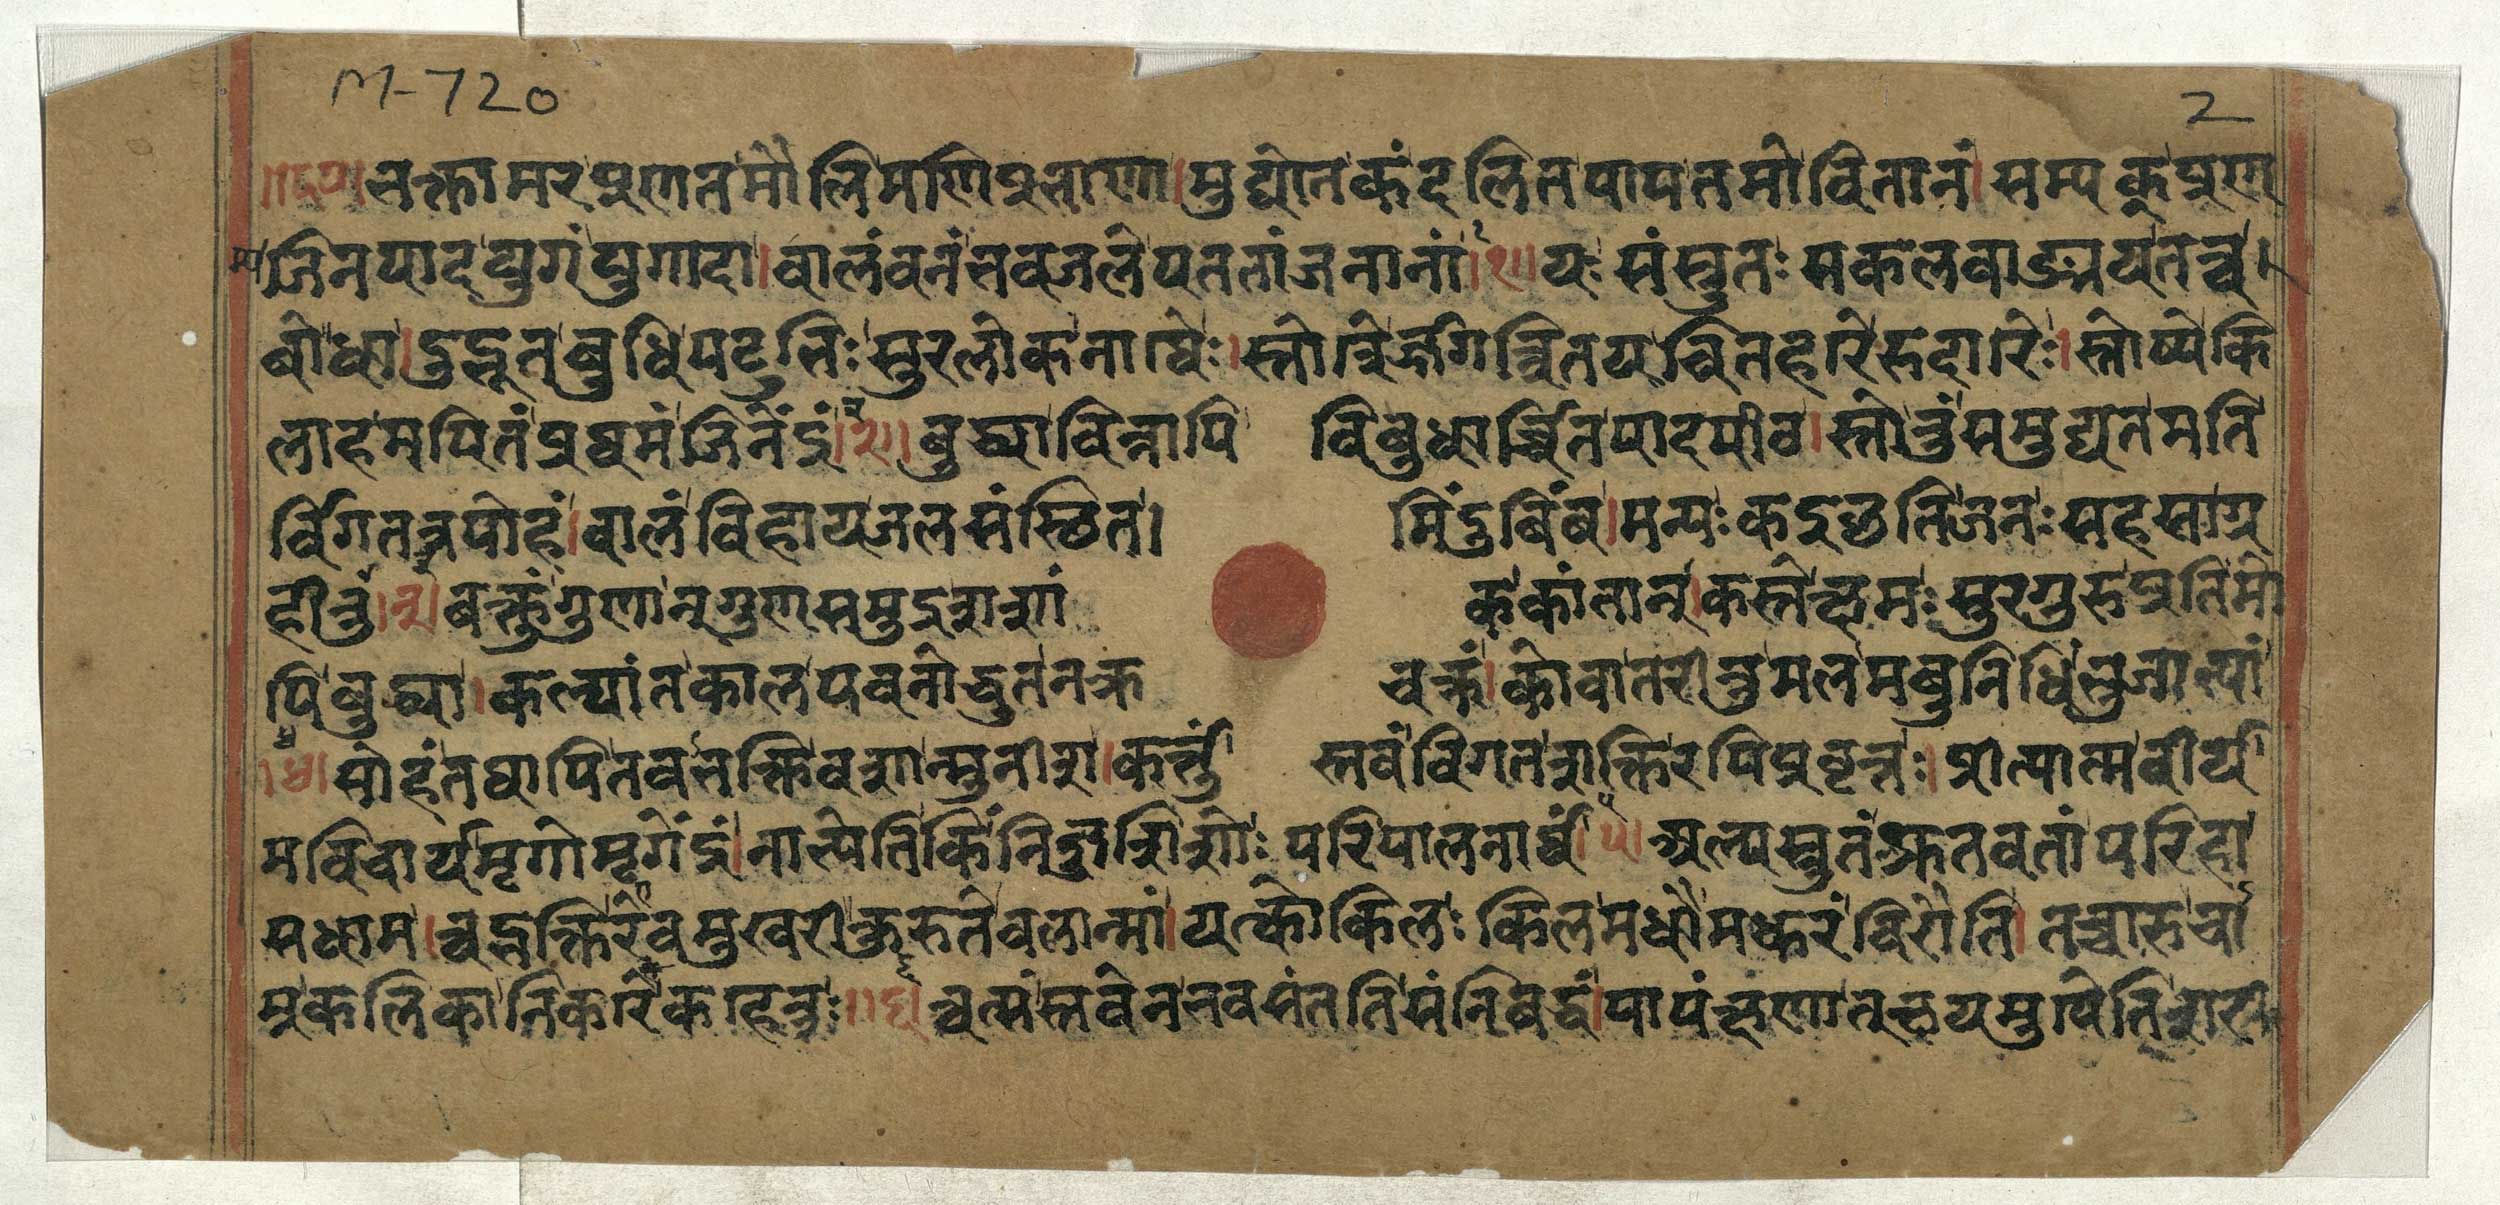 M-720
2
॥६०॥ भक्तामरप्रणतमौलिमणिप्रभाणा।मुद्योतकंदलितपापतमोवितानं।सम्यक्प्रण
म्य जिनपादयुगंयुगादा।वालंबनंभवजलेपततांजनानां।१॥यः संस्तुतः सकलवाङ्मयतत्व।
बोधा।दुद्भूतबुधिपटुभिः सुरलोकनाथैः।स्तोत्रैर्जगत्रितयचित्तहरैरुदारैः।स्तोष्येकि
लाहमपितंप्रथमंजिनेंद्रं।२॥बुद्ध्याविनापि विबुधार्च्चितपादपीठ।स्तोतुंसमुद्यतमति
र्विगतत्रपोहं।बालंविहायजलसंस्थित। मिंदुबिंब।मन्यः कइछतिजनः सहसाग्र
हीतुं।३।वक्तुंगुणान्गुणसमुद्रशशां ककांतान्।कस्तेक्षमः सुरगुरुप्रतिमो
पिबुद्ध्या।कल्पांतकालपवनोद्धुतनक्र चक्रं।कोवातरीतुमलमंबुनिधिंभुजाभ्यां
।४।सोहंतथापितवभक्तिवशान्मुनीश।कर्त्तुं स्तवंविगतशक्तिरपिप्रवृत्तः।प्रीत्यात्मवीर्य
मविचार्यमृगोमृगेंद्रं।नाभ्येतिकिंनिजशिशोः परिपालनार्थं।५।अल्पश्रुतंश्रुतवतांपरिहा
सधाम।त्वद्भक्तिरेवमुखरीकुरुतेबलान्मां।यत्कोकिलः किलमधौमधुरंविरौति।तच्चारुचा
म्रकलिकानिकरैकहेतुः॥६।त्वत्संस्तवेनभवसंततिसंनिबद्धं।पापंक्षणात्क्षयमुपैतिशरी